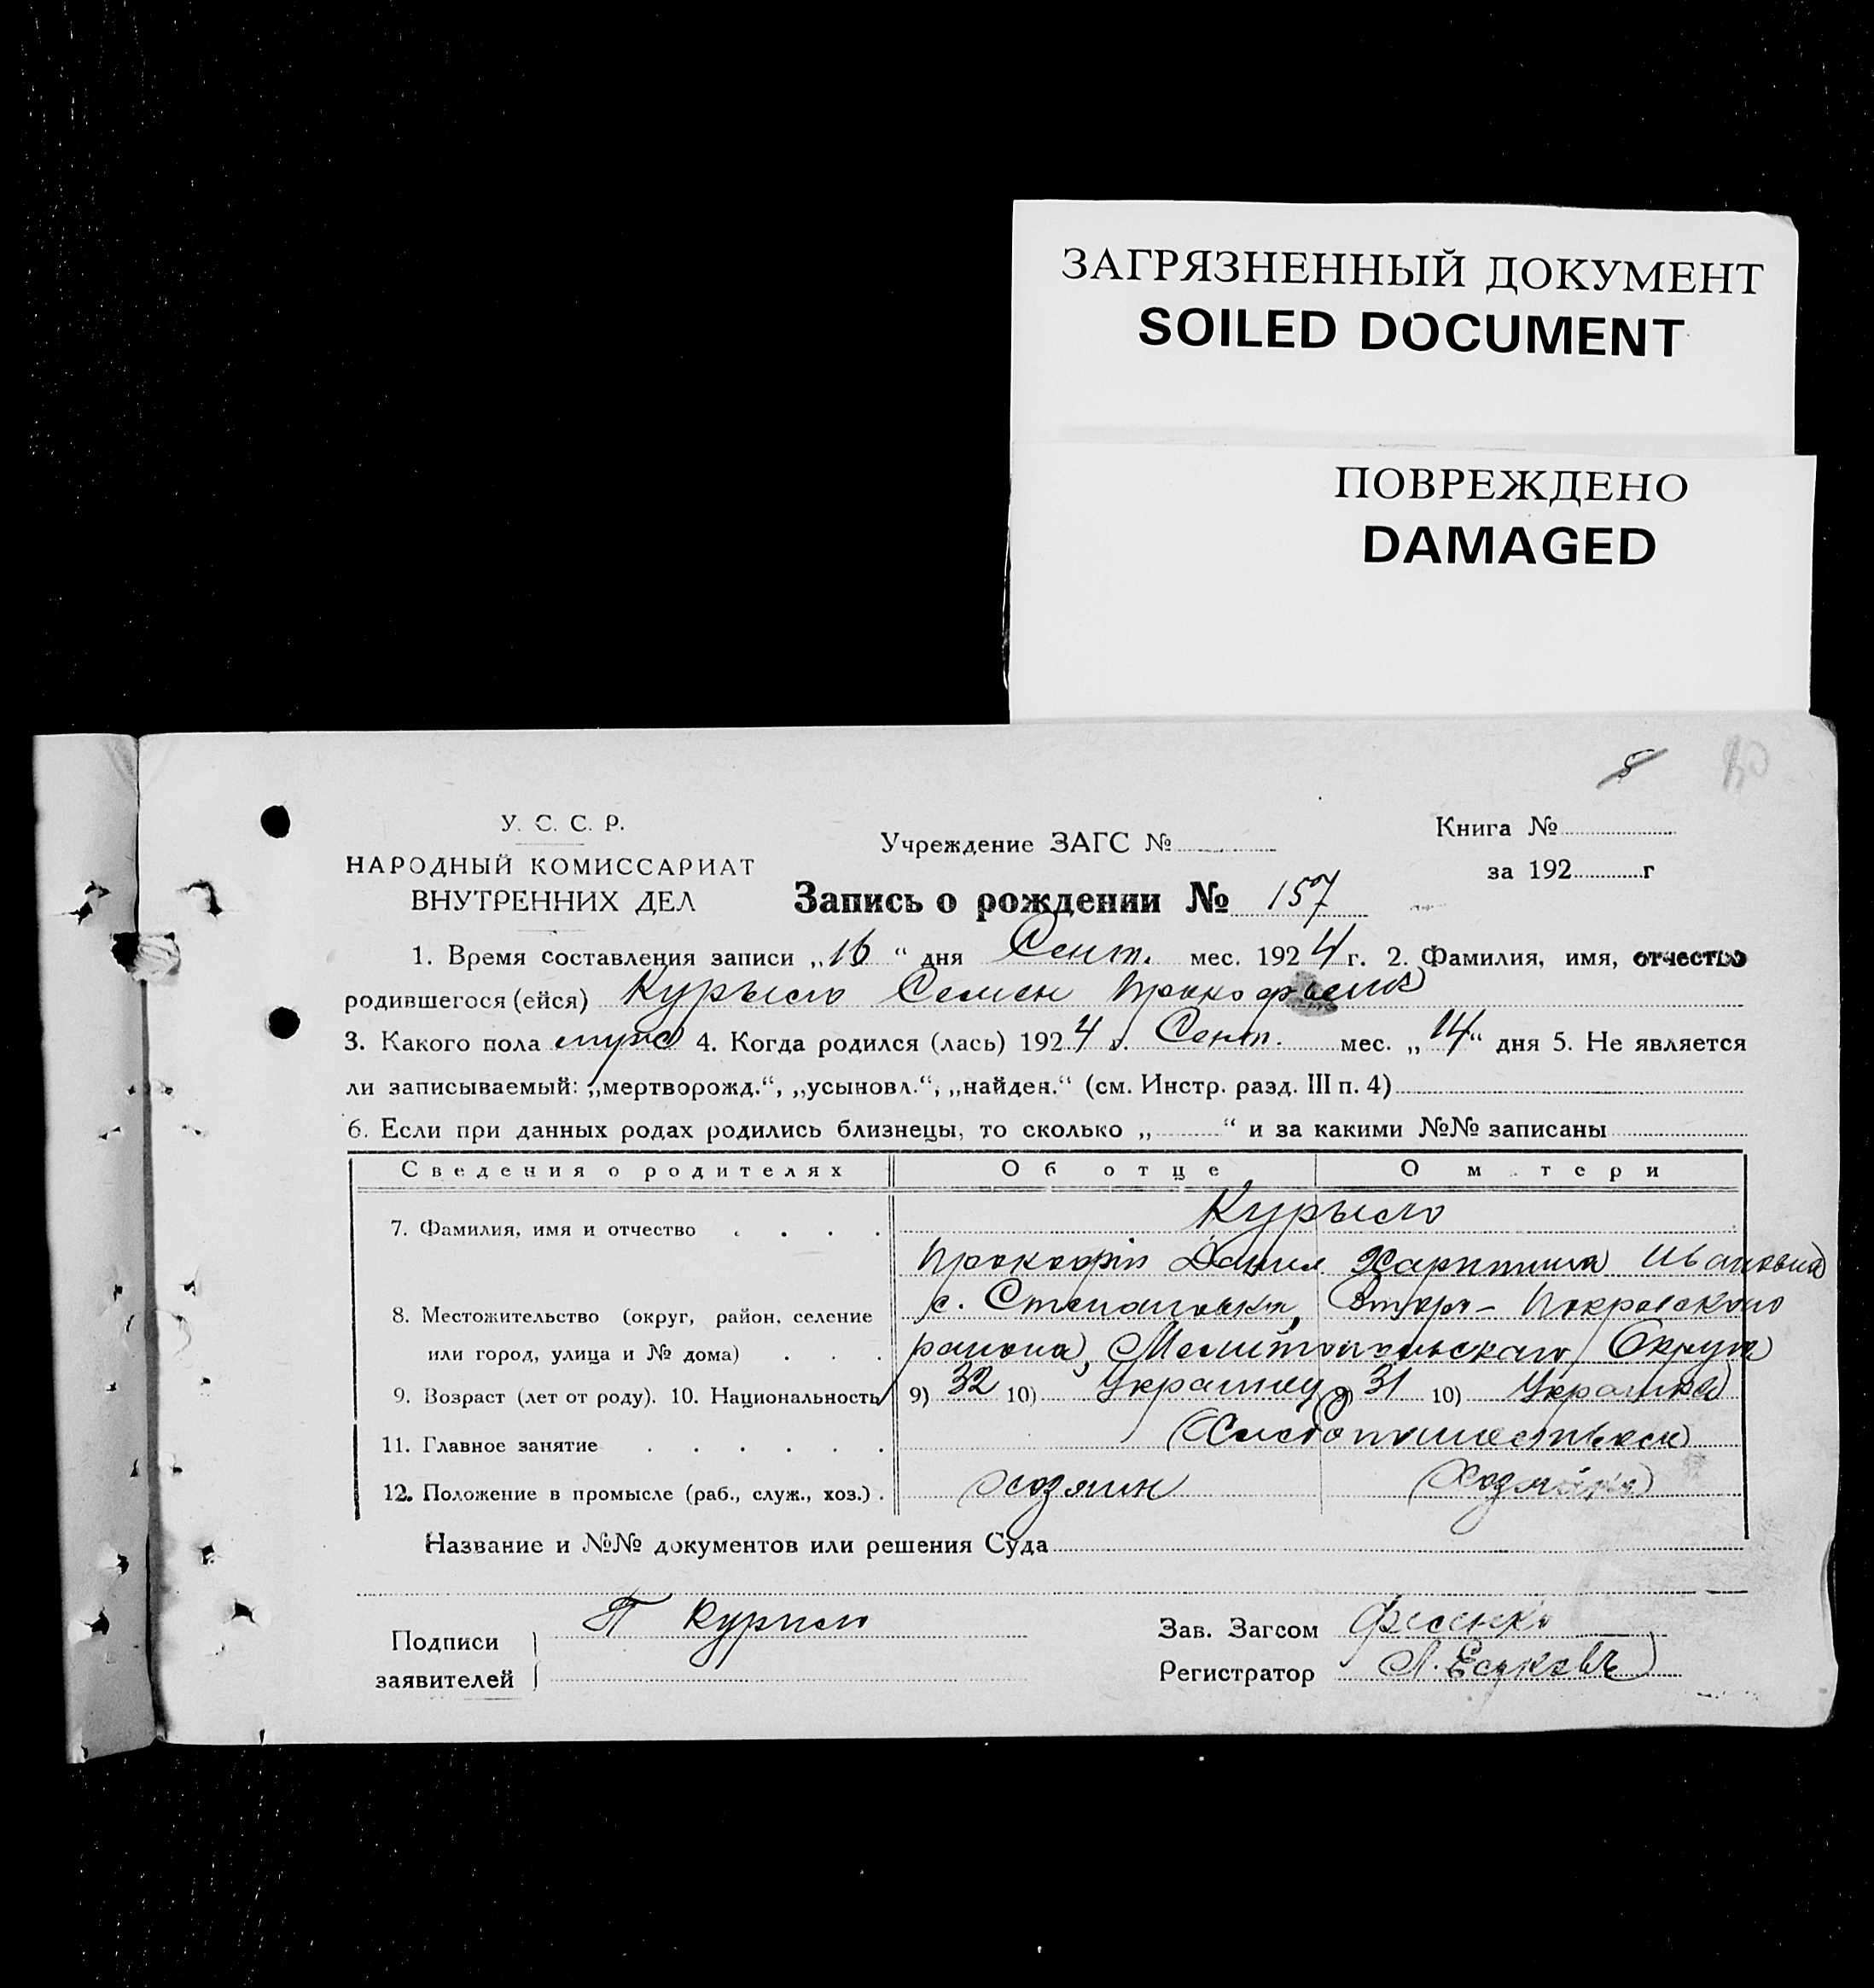 ЗАГРЯЗНЕННЫЙ ДОКУМЕНТ
SOILED DOCUMENT
ПОВРЕЖДЕНО
DAMAGED
8
У. С. С. Р.
НАРОДНЫЙ КОМИССАРИАТ
ВНУТРЕННИХ ДЕЛ
Учреждение ЗАГС №
Книга №
за 192 г
Запись о рождении № 157
1. Время составления записи „16“ дня Сент. мес. 1924 г. 2. Фамилия, имя, отчество
родившегося (ейся) Курысло Семен Прокофьевич
3. Какого пола муж 4. Когда родился (лась) 1924 г. Сент. мес. „14“ дня 5. Не является
ли записываемый: „мертворожд.“, „усыновл.“, „найден.“ (см. Инстр. разд. III п. 4)
6. Если при данных родах родились близнецы, то сколько „ “ и за какими №№ записаны
Сведения о родителях Об отце О м тери
7. Фамилия, имя и отчество Курысло
Прокофій Данил Харитина Ивановна
8. Местожительство (округ, район, селение с. Степановка, Втор- Покровского
или город, улица и № дома) района, Мелитопольскаго Округа
9. Возраст (лет от роду). 10. Национальность 9) 32 10) Украинец 9) 31 10) Украинка
11. Главное занятие
12. Положение в промысле (раб., служ., хоз.) Хозяин Хозяйка
Название и №№ документов или решения Суда
Подписи П Курисло
заявителей
Зав. Загсом Фесенко
Регистратор Л.